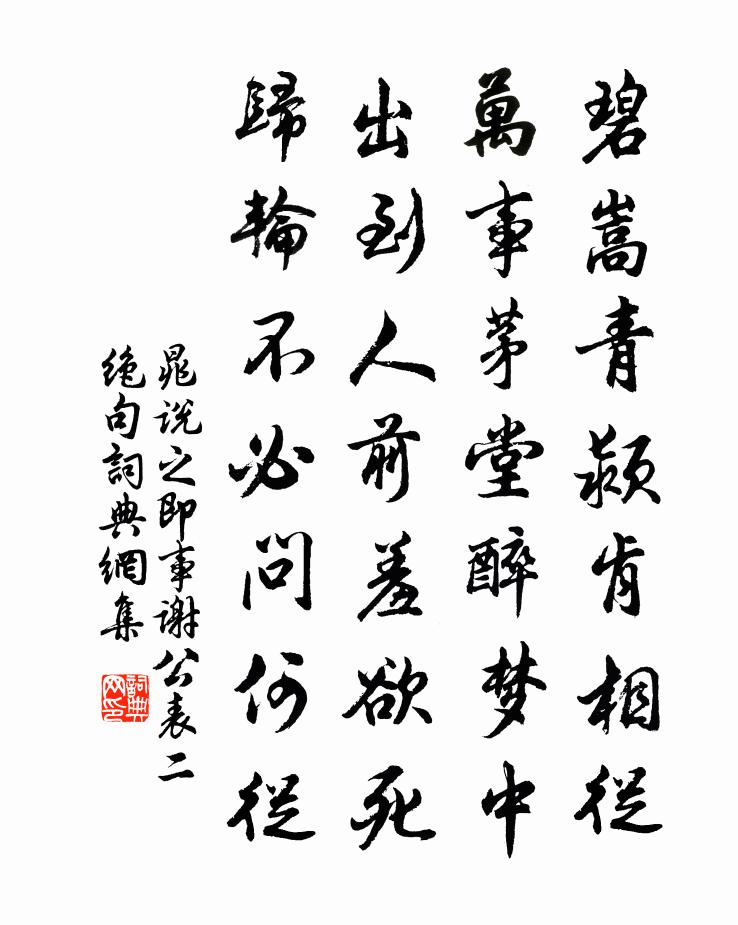 碧嵩青潁肯相從
萬事茅堂醉梦中
出到人前羞欲死
歸輪不必問何從
晁说之即事谢公表二
绝句詞典網集
詞典网印